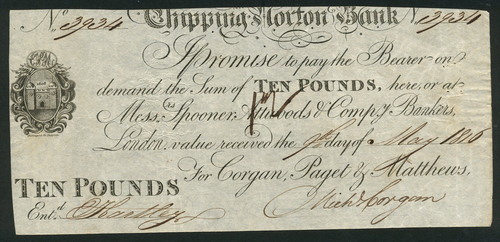 No. 3934 Chipping Norton Bank No. 3934
I Promise to pay the Bearer on
demand the Sum of TEN POUNDS, here, or at
Mess.rs Spooner, Attwoods & Compy. Bankers,
London. value received the 9th day of May 1816
For Corgan, Paget & Matthews,
TEN POUNDS
Ent.d Michl. Corgan